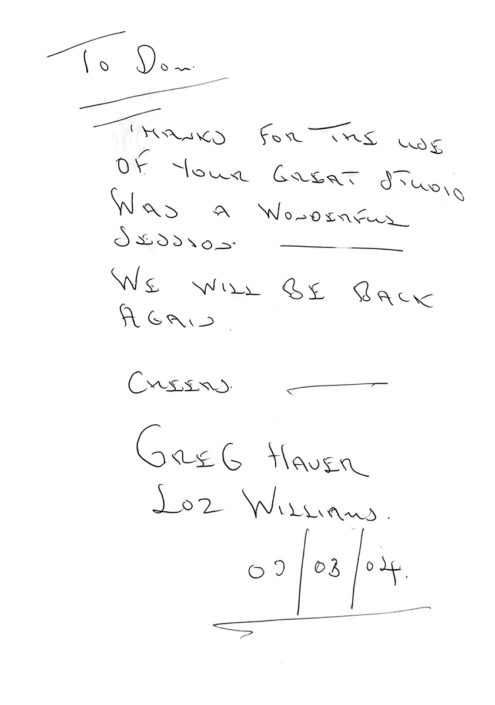 To Dom.
THANKS FOR THE USE
OF YOUR GREAT STUDIO
WAS A WONDERFUL
SESSION.
WE WILL BE BACK
AGAIN.
CHEERS.
GREG HAVER
LOZ WILLIAMS.
/03/04.